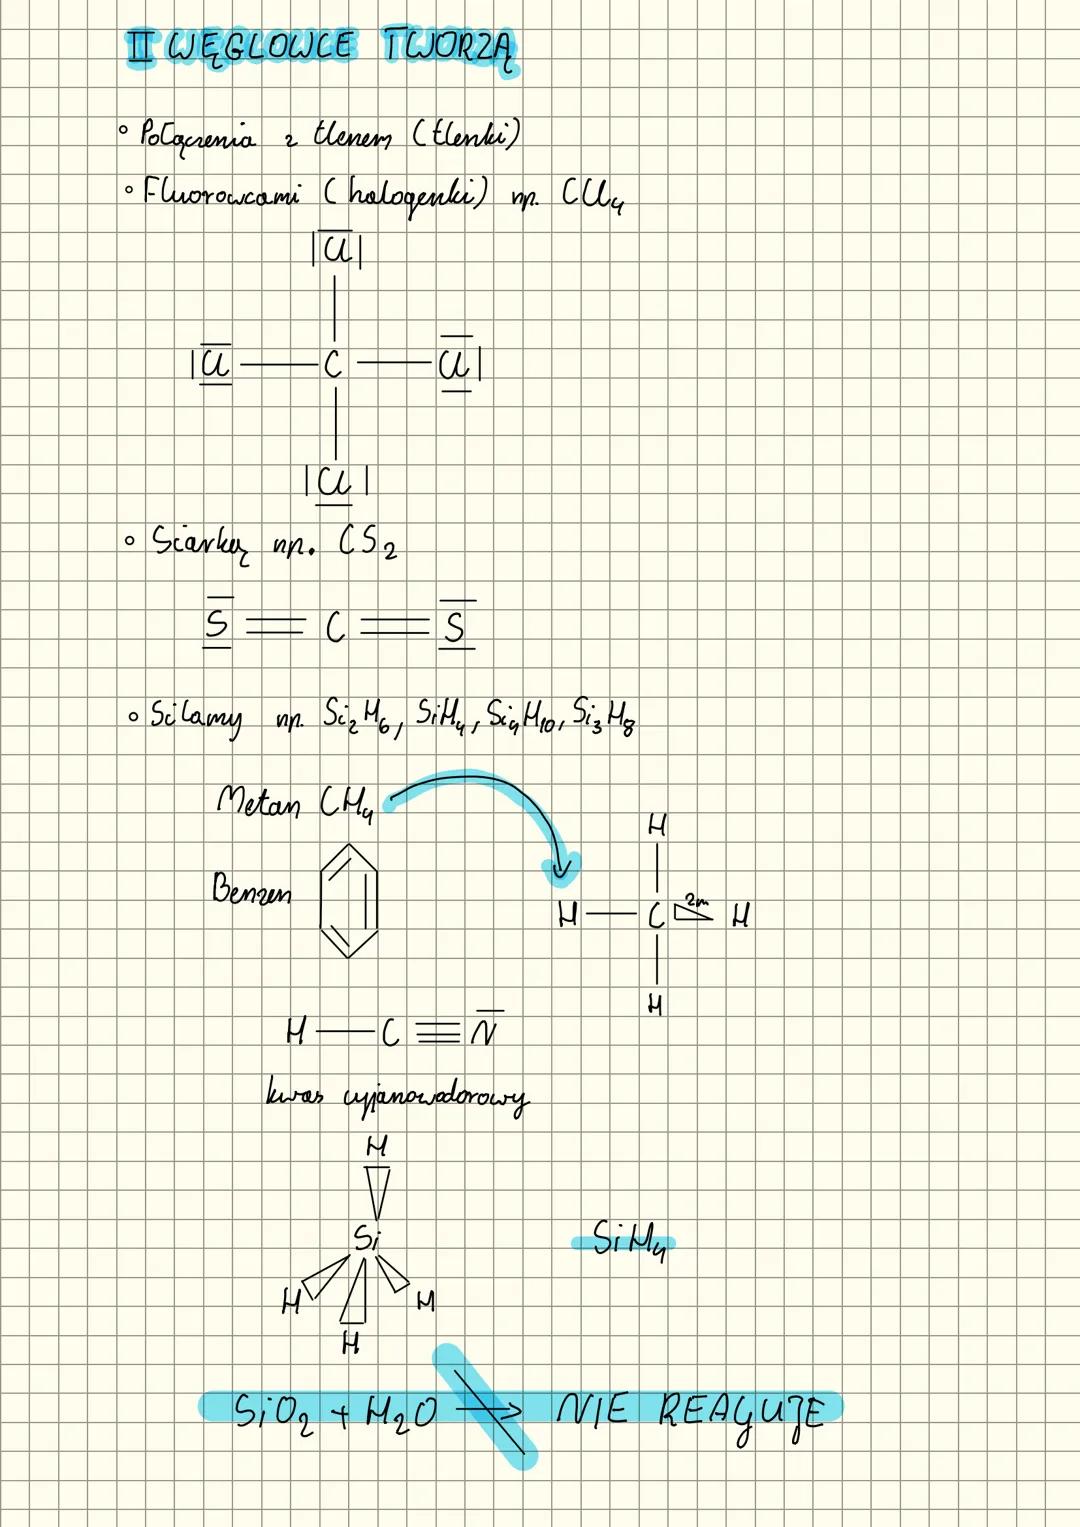 II WĘGLOWCE TWORZĄ
° Połączenia z tlenem (tlenki)
° Fluorowcami (halogenki) np. CCl₄
|Cl|
|Cl — C — Cl|
|Cl|
° Siarką np. CS₂
S = C = S
° Silamy np. Si₂H₆, SiH₄, Si₄H₁₀, Si₃H₈
Metan CH₄
H
Benzen
H — C H
H
H — C ≡ N
kwas cyjanowodorowy
H
Si
SiH₄
H H
H
SiO₂ + H₂O → NIE REAGUJE